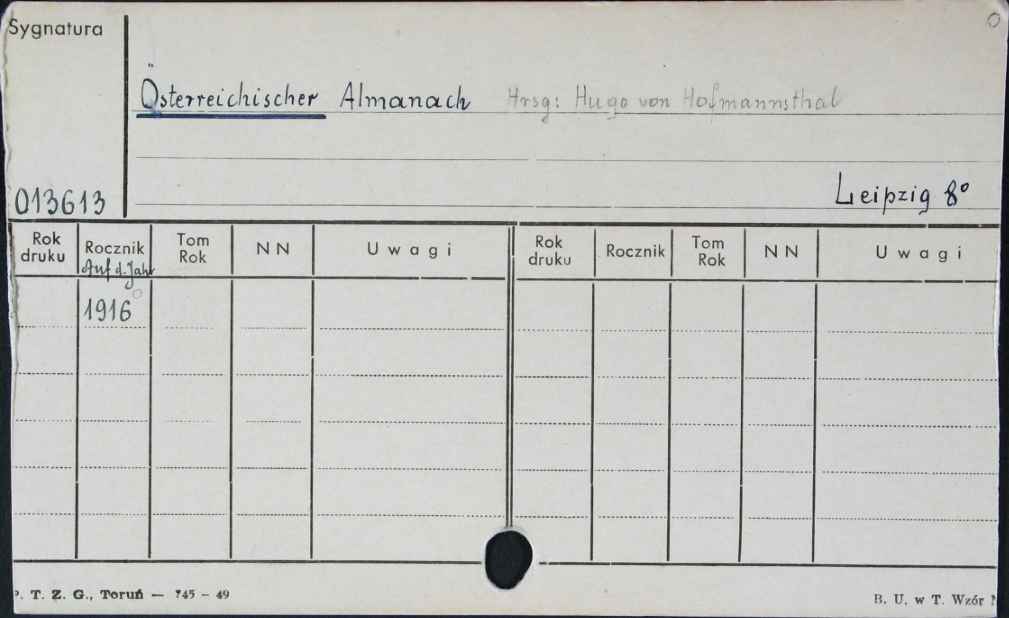 Sygnatura
Österreichischer Almanach Hrsg: Hugo von Hofmannsthal
013613
Leipzig 8°
Rok druku Rocznik Tom Rok NN Uwagi Rok druku Rocznik Tom Rok NN Uwagi
Auf d. Jahr
1916
P. T. Z. G., Toruń — 745 - 49
B. U. w T. Wzór